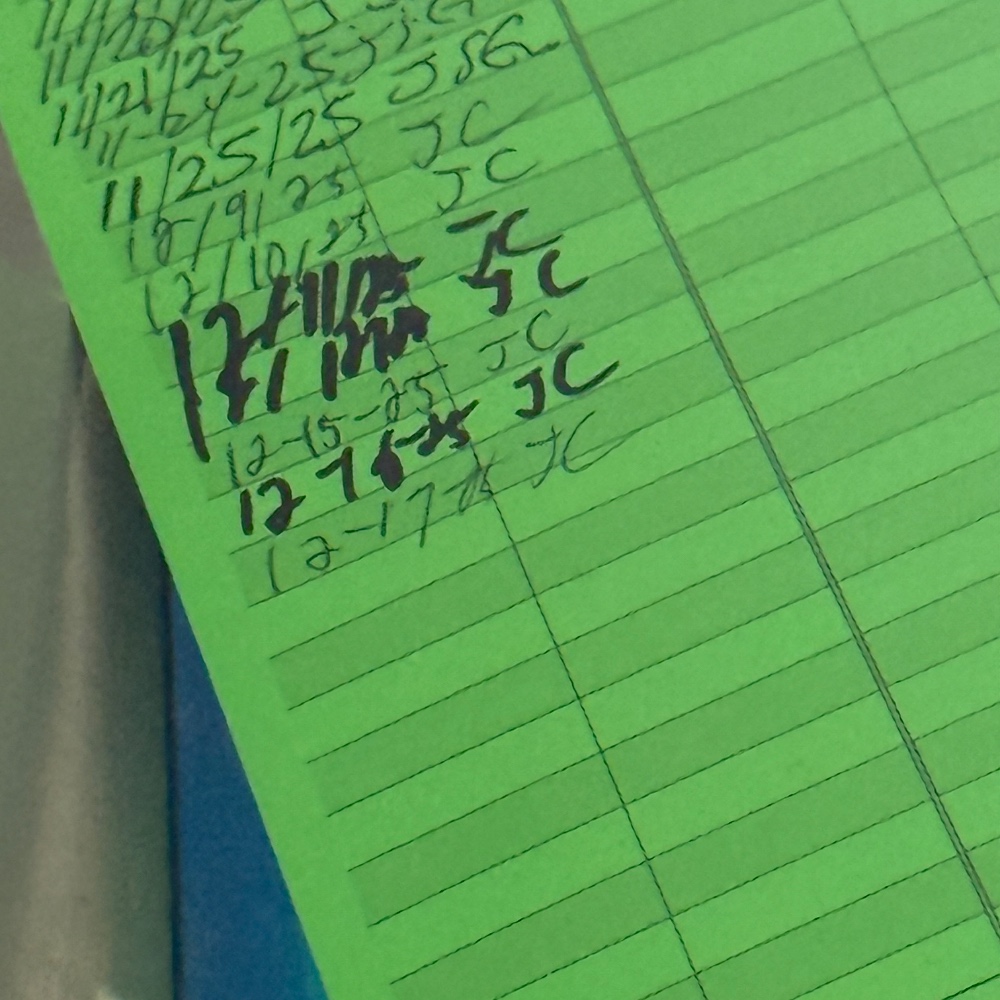 11/20/25
11/21/25
11-24-25 J.G
11/25/25 JSG
12/9/25 JC
12/10/25 JC
12/11/25 JC
JC
12-15-25 JC
12-16-25 JC
12-17-25 JC